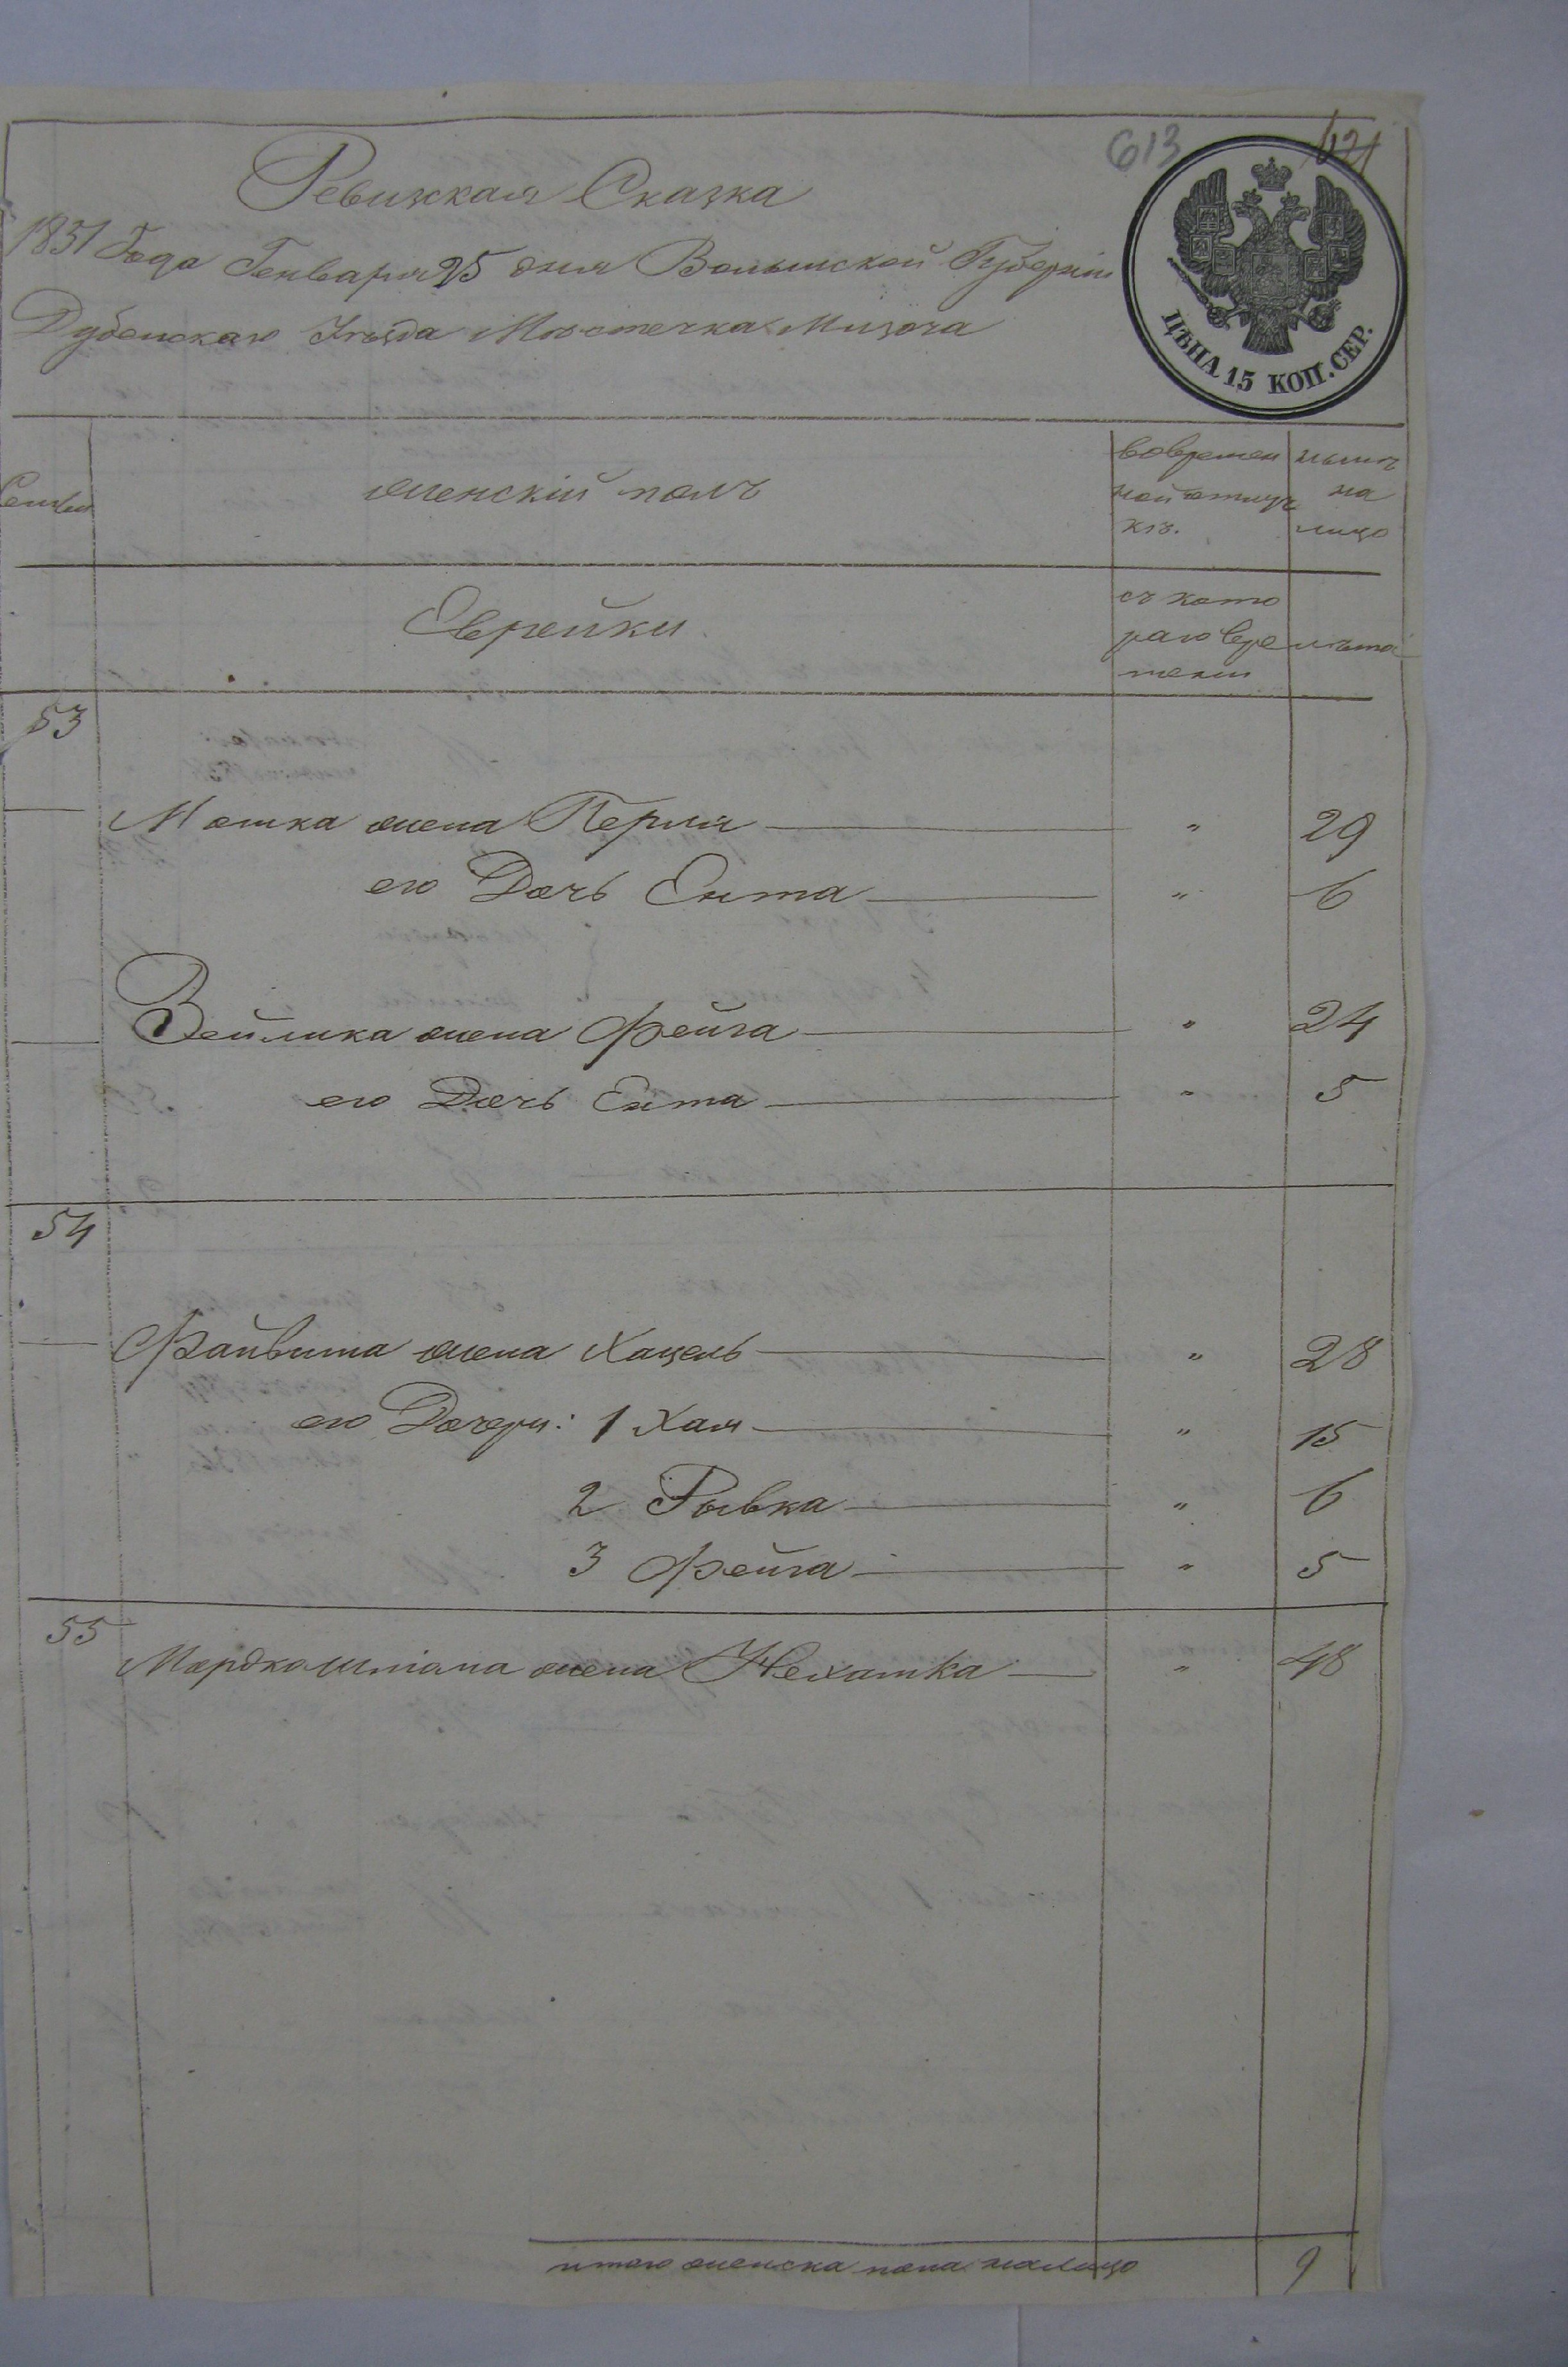 613
621
Ревижкая Сказка
1851 Года Генваря 25 дня Волынской Губерніи
Дубенскаго Уѣзда Мѣстечка Мизоча
ЦѢНА 15 КОП. СЕР.
Семьи
женскій полъ
вовремен
ной отлуч
кѣ.
нынѣ
на
лицо
Еврейки
съ кото
раго вре
мени
лѣта
53
Мошка жена Перля — " 29
его Дочь Ента — " 6
Зейлика жена Фейга — " 24
его Дочь Ента — " 5
54
Файвиша жена Хацель — " 28
его Дочери: 1 Хая — " 15
2 Рывка — " 6
3 Фейга — " 5
55
Мордко жена Нехамка — " 48
итого женска пола налицо 9